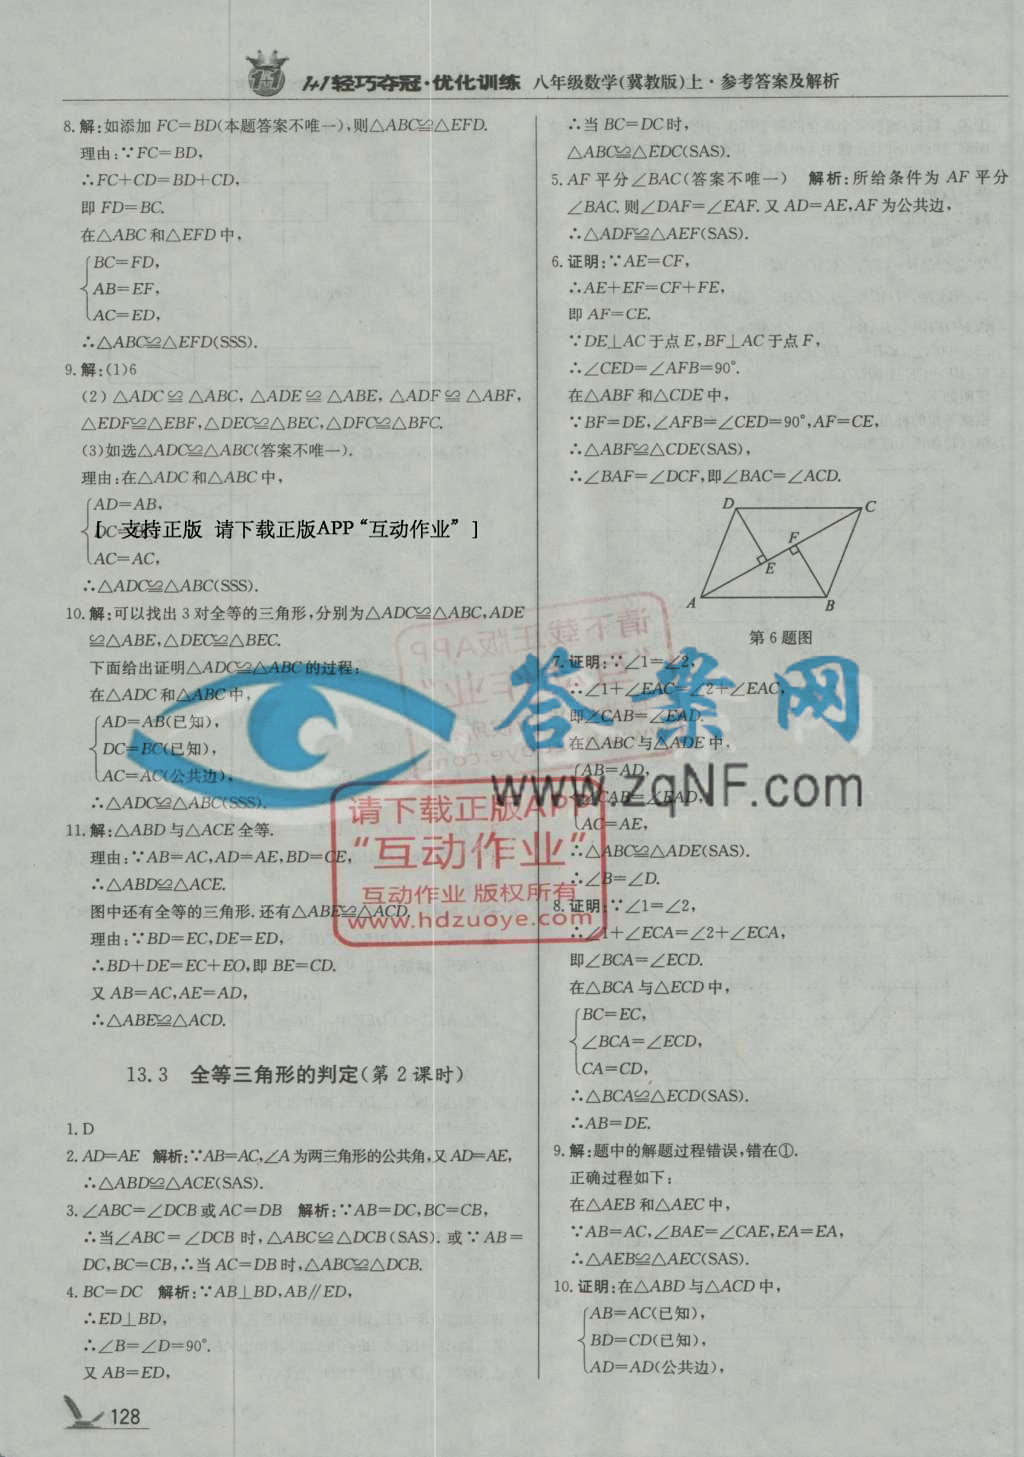 1+1轻巧夺冠·优化训练 八年级数学(冀教版)上·参考答案及解析
8.解:如添加FC=BD(本题答案不唯一),则△ABC≌△EFD.
理由:∵FC=BD,
∴FC+CD=BD+CD,
即FD=BC.
在△ABC和△EFD中,
BC=FD,
AB=EF,
AC=ED,
∴△ABC≌△EFD(SSS).
9.解:(1)6
(2)△ADC≌△ABC,△ADE≌△ABE,△ADF≌△ABF,
△EDF≌△EBF,△DEC≌△BEC,△DFC≌△BFC.
(3)如选△ADC≌△ABC(答案不唯一).
理由:在△ADC和△ABC中,
AD=AB,
[ 支持正版 请下载正版APP“互动作业” ]
AC=AC,
∴△ADC≌△ABC(SSS).
10.解:可以找出3对全等的三角形,分别为△ADC≌△ABC,ADE
≌△ABE,△DEC≌△BEC.
下面给出证明△ADC≌△ABC的过程:
在△ADC和△ABC中,
AD=AB(已知),
DC=BC(已知),
AC=AC(公共边),
∴△ADC≌△ABC(SSS).
11.解:△ABD与△ACE全等.
理由:∵AB=AC,AD=AE,BD=CE,
∴△ABD≌△ACE.
图中还有全等的三角形.还有△ABE≌△ACD,
理由:∵BD=EC,DE=ED,
∴BD+DE=EC+EO,即BE=CD.
又AB=AC,AE=AD,
∴△ABE≌△ACD.
13.3 全等三角形的判定(第2课时)
1.D
2.AD=AE 解析:∵AB=AC,∠A为两三角形的公共角,又AD=AE,
∴△ABD≌△ACE(SAS).
3.∠ABC=∠DCB或AC=DB 解析:∵AB=DC,BC=CB,
∴当∠ABC=∠DCB时,△ABC≌△DCB(SAS).或∵AB=
DC,BC=CB,∴当AC=DB时,△ABC≌△DCB.
4.BC=DC 解析:∵AB⊥BD,AB∥ED,
∴ED⊥BD,
∴∠B=∠D=90°.
又AB=ED,
∴当BC=DC时,
△ABC≌△EDC(SAS).
5.AF平分∠BAC(答案不唯一) 解析:所给条件为AF平分
∠BAC.则∠DAF=∠EAF.又AD=AE,AF为公共边,
∴△ADF≌△AEF(SAS).
6.证明:∵AE=CF,
∴AE+EF=CF+FE,
即AF=CE.
∵DE⊥AC于点E,BF⊥AC于点F,
∴∠CED=∠AFB=90°.
在△ABF和△CDE中,
∵BF=DE,∠AFB=∠CED=90°,AF=CE,
∴△ABF≌△CDE(SAS),
∴∠BAF=∠DCF,即∠BAC=∠ACD.
D C
F
E
A B
第6题图
7.证明:∵∠1=∠2,
∴∠1+∠EAC=∠2+∠EAC,
即∠CAB=∠EAD.
在△ABC与△ADE中,
AB=AD,
∠CAB=∠EAD,
AC=AE,
∴△ABC≌△ADE(SAS).
∴∠B=∠D.
8.证明:∵∠1=∠2,
∴∠1+∠ECA=∠2+∠ECA,
即∠BCA=∠ECD.
在△BCA与△ECD中,
BC=EC,
∠BCA=∠ECD,
CA=CD,
∴△BCA≌△ECD(SAS).
∴AB=DE.
9.解:题中的解题过程错误,错在①.
正确过程如下:
在△AEB和△AEC中,
∵AB=AC,∠BAE=∠CAE,EA=EA,
∴△AEB≌△AEC(SAS).
10.证明:在△ABD与△ACD中,
AB=AC(已知),
BD=CD(已知),
AD=AD(公共边),
答案网
www.zqNF.com
请下载正版APP
“互动作业”
互动作业 版权所有
www.hdzuoye.com
128